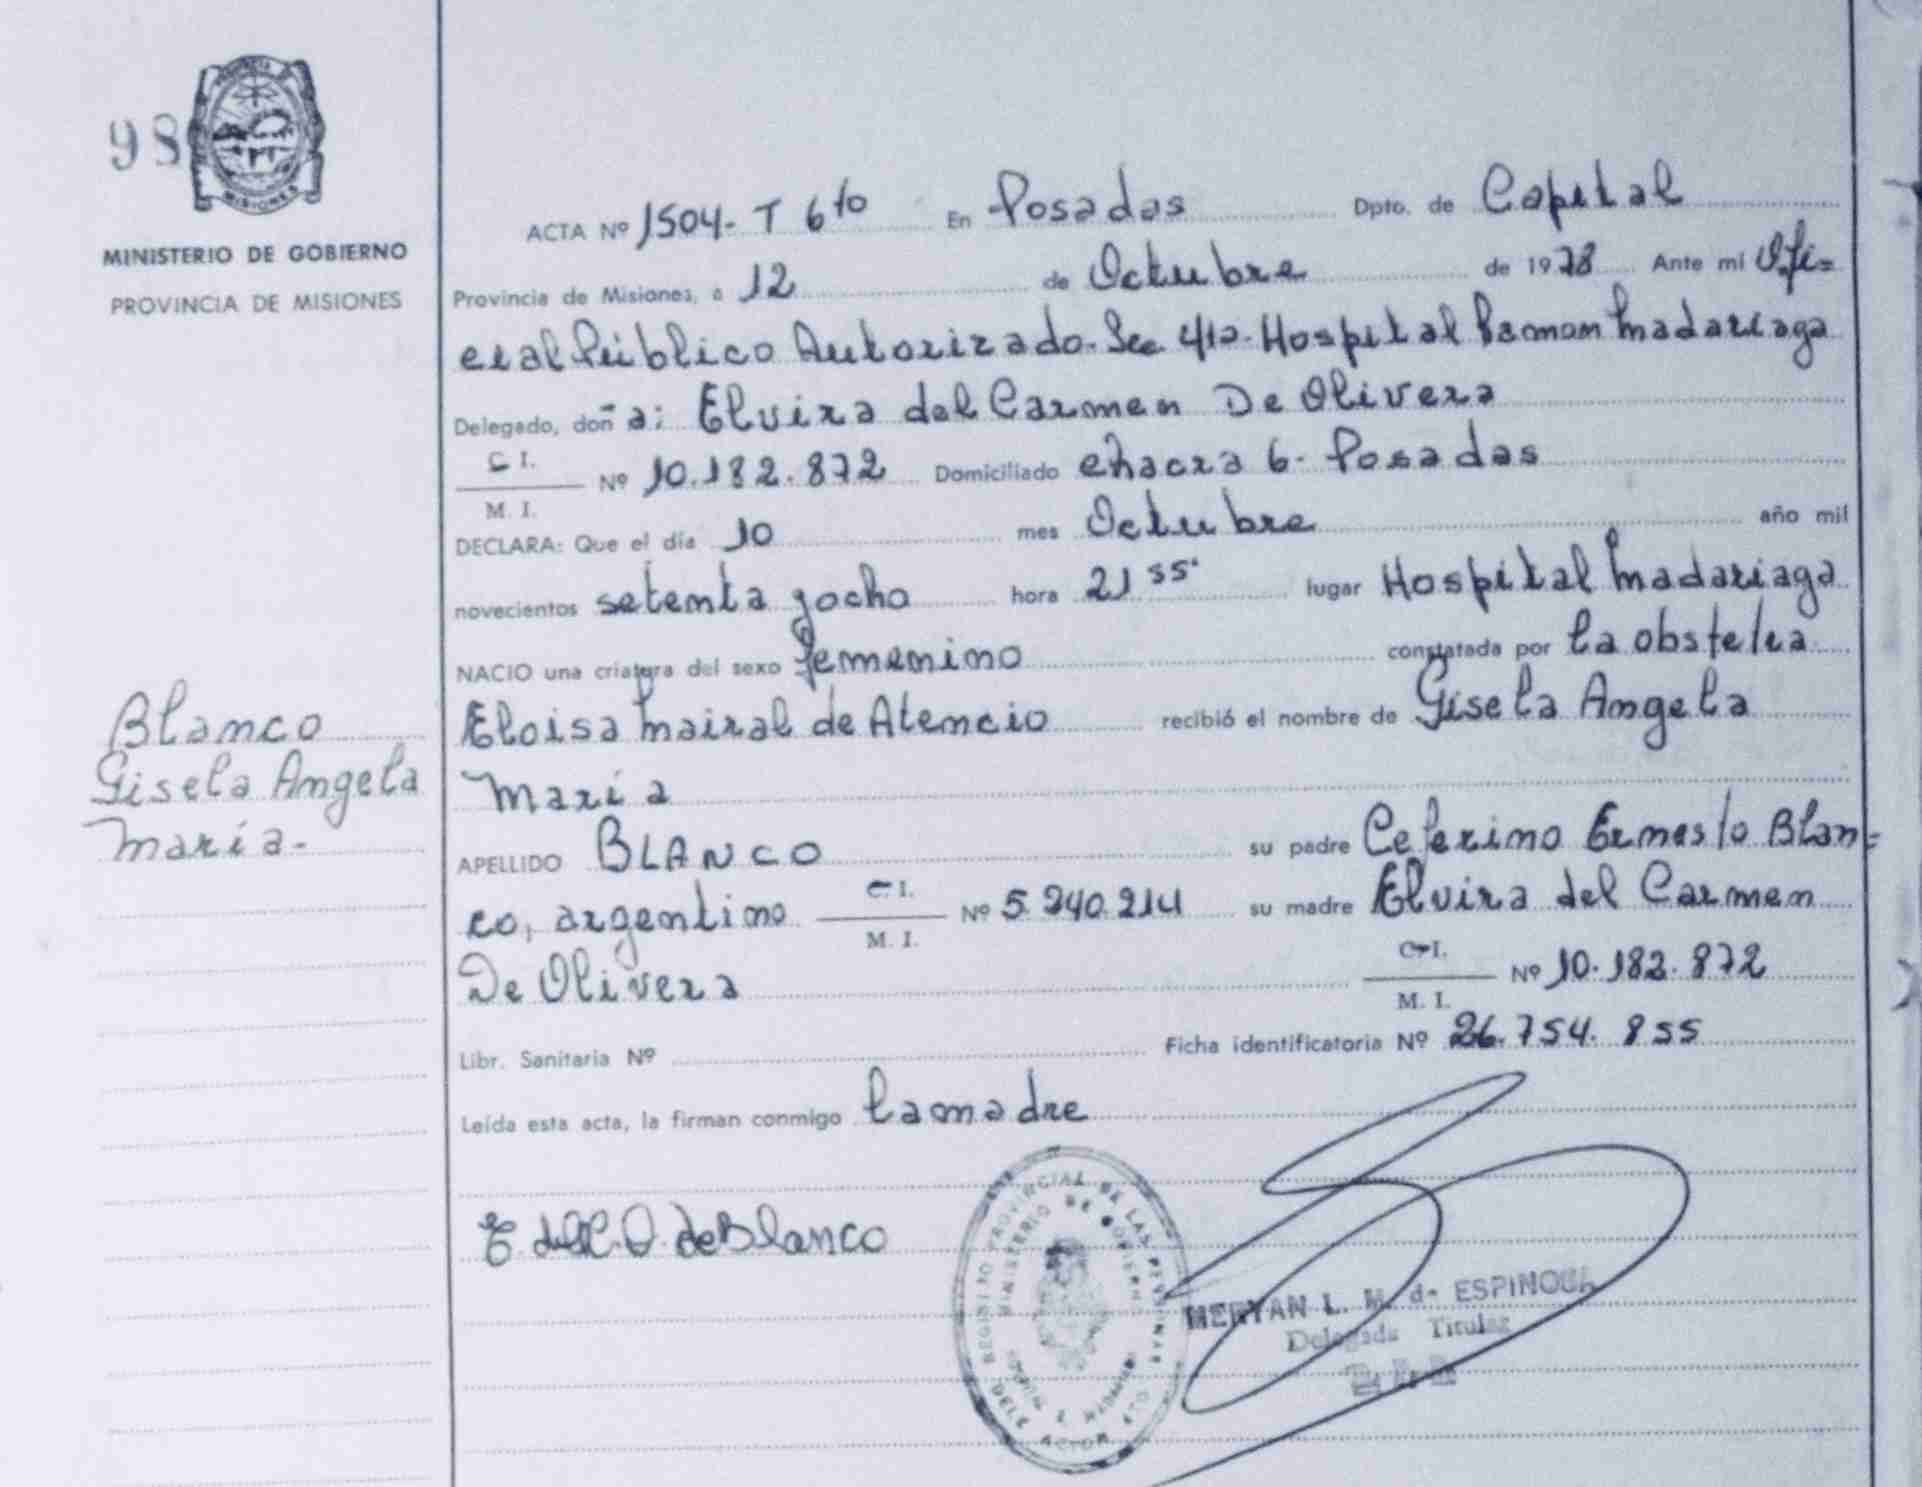 98
PROVINCIA DE
MISIONES
MINISTERIO DE GOBIERNO
PROVINCIA DE MISIONES
Blanco
Gisela Angela
María-
ACTA Nº 1504- T 6to En Posadas Dpto. de Capital
Provincia de Misiones, a 12 de Octubre de 1978 Ante mi Ofi=
cial Público Autorizado. Sec 4ta. Hospital Ramon Madariaga
Delegado, doña; Elvira del Carmen De Olivera
C I.
M. I.
Nº 10.182.872 Domiciliado chacra 6- Posadas
DECLARA: Que el día 10 mes Octubre año mil
novecientos setenta y ocho hora 21 55' lugar Hospital Madariaga
NACIO una criatura del sexo femenino constatada por la obstetra
Eloisa Mairal de Atencio recibió el nombre de Gisela Angela
María
APELLIDO BLANCO su padre Ceferino Ernesto Blan=
co, argentino C. I.
M. I.
Nº 5.240.214 su madre Elvira del Carmen
De Olivera C. I.
M. I.
Nº 10.182.872
Libr. Sanitaria Nº Ficha identificatoria Nº 26.754.855
Leída esta acta, la firman conmigo la madre
E. del C. O. de Blanco
REGISTRO PROVINCIAL DE LAS PERSONAS
MINISTERIO DE GOBIERNO
L. M. de ESPINOSA
Delegada Titular